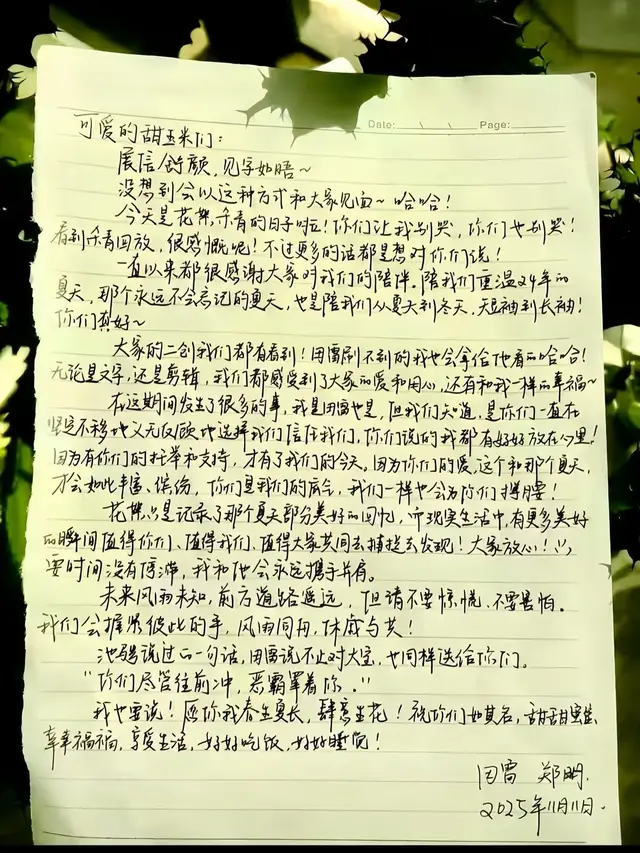 Date: \ \ Page:
可爱的甜玉米们：
展信舒颜，见字如晤~
没想到会以这种方式和大家见面~哈哈！
今天是花絮杀青的日子啦！你们让我别哭，你们也别哭！
看到杀青回放，很感慨呢！不过更多的话都是想对你们说！
一直以来都很感谢大家对我们的陪伴。陪我们重温24年的
夏天，那个永远不会忘记的夏天，也是陪我们从夏天到冬天，短袖到长袖！
你们真好~
大家的二创我们都有看到！田雷刷不到的我也会拿给他看的哈哈！
无论是文字，还是剪辑，我们都感受到了大家的爱和用心，还有和我一样的幸福~
在这期间发生了很多的事，我是田雷也是，但我们知道，是你们一直在
坚定不移地义无反顾地选择我们信任我们，你们说的我都有好好放在心里！
因为有你们的托举和支持，才有了我们的今天。因为你们的爱，这个和那个夏天，
才会如此丰富、缤纷，你们是我们的底气，我们一样也会为你们撑腰！
花絮只是记录了那个夏天部分美好的回忆，而现实生活中，有更多美好
的瞬间值得你们、值得我们、值得大家共同去捕捉去发现！大家放心！
要时间没有停滞，我和他会永远携手并肩。
未来风雨未知，前方道路遥远，但请不要惊慌、不要害怕。
我们会握紧彼此的手，风雨同舟，休戚与共！
池骋说过的一句话，田雷说不止对大宝，也同样送给你们。
“你们尽管往前冲，恶霸罩着你。”
我也要说！愿你我春生夏长，肆意生花！祝你们如其名，甜甜蜜蜜、
幸幸福福，享受生活，好好吃饭，好好睡觉！
田雷 郑朋
2025年11月11日.